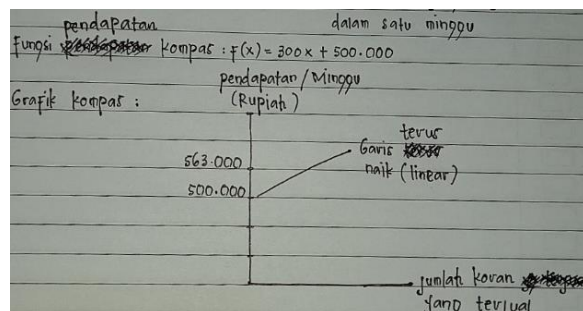 pendapatan
dalam satu minggu
Fungsi kompas : f(x) = 300x + 500.000
pendapatan / Minggu
(Rupiah)
Grafik kompas :
563.000
500.000
Garis terus
naik (linear)
jumlah koran
yang terjual